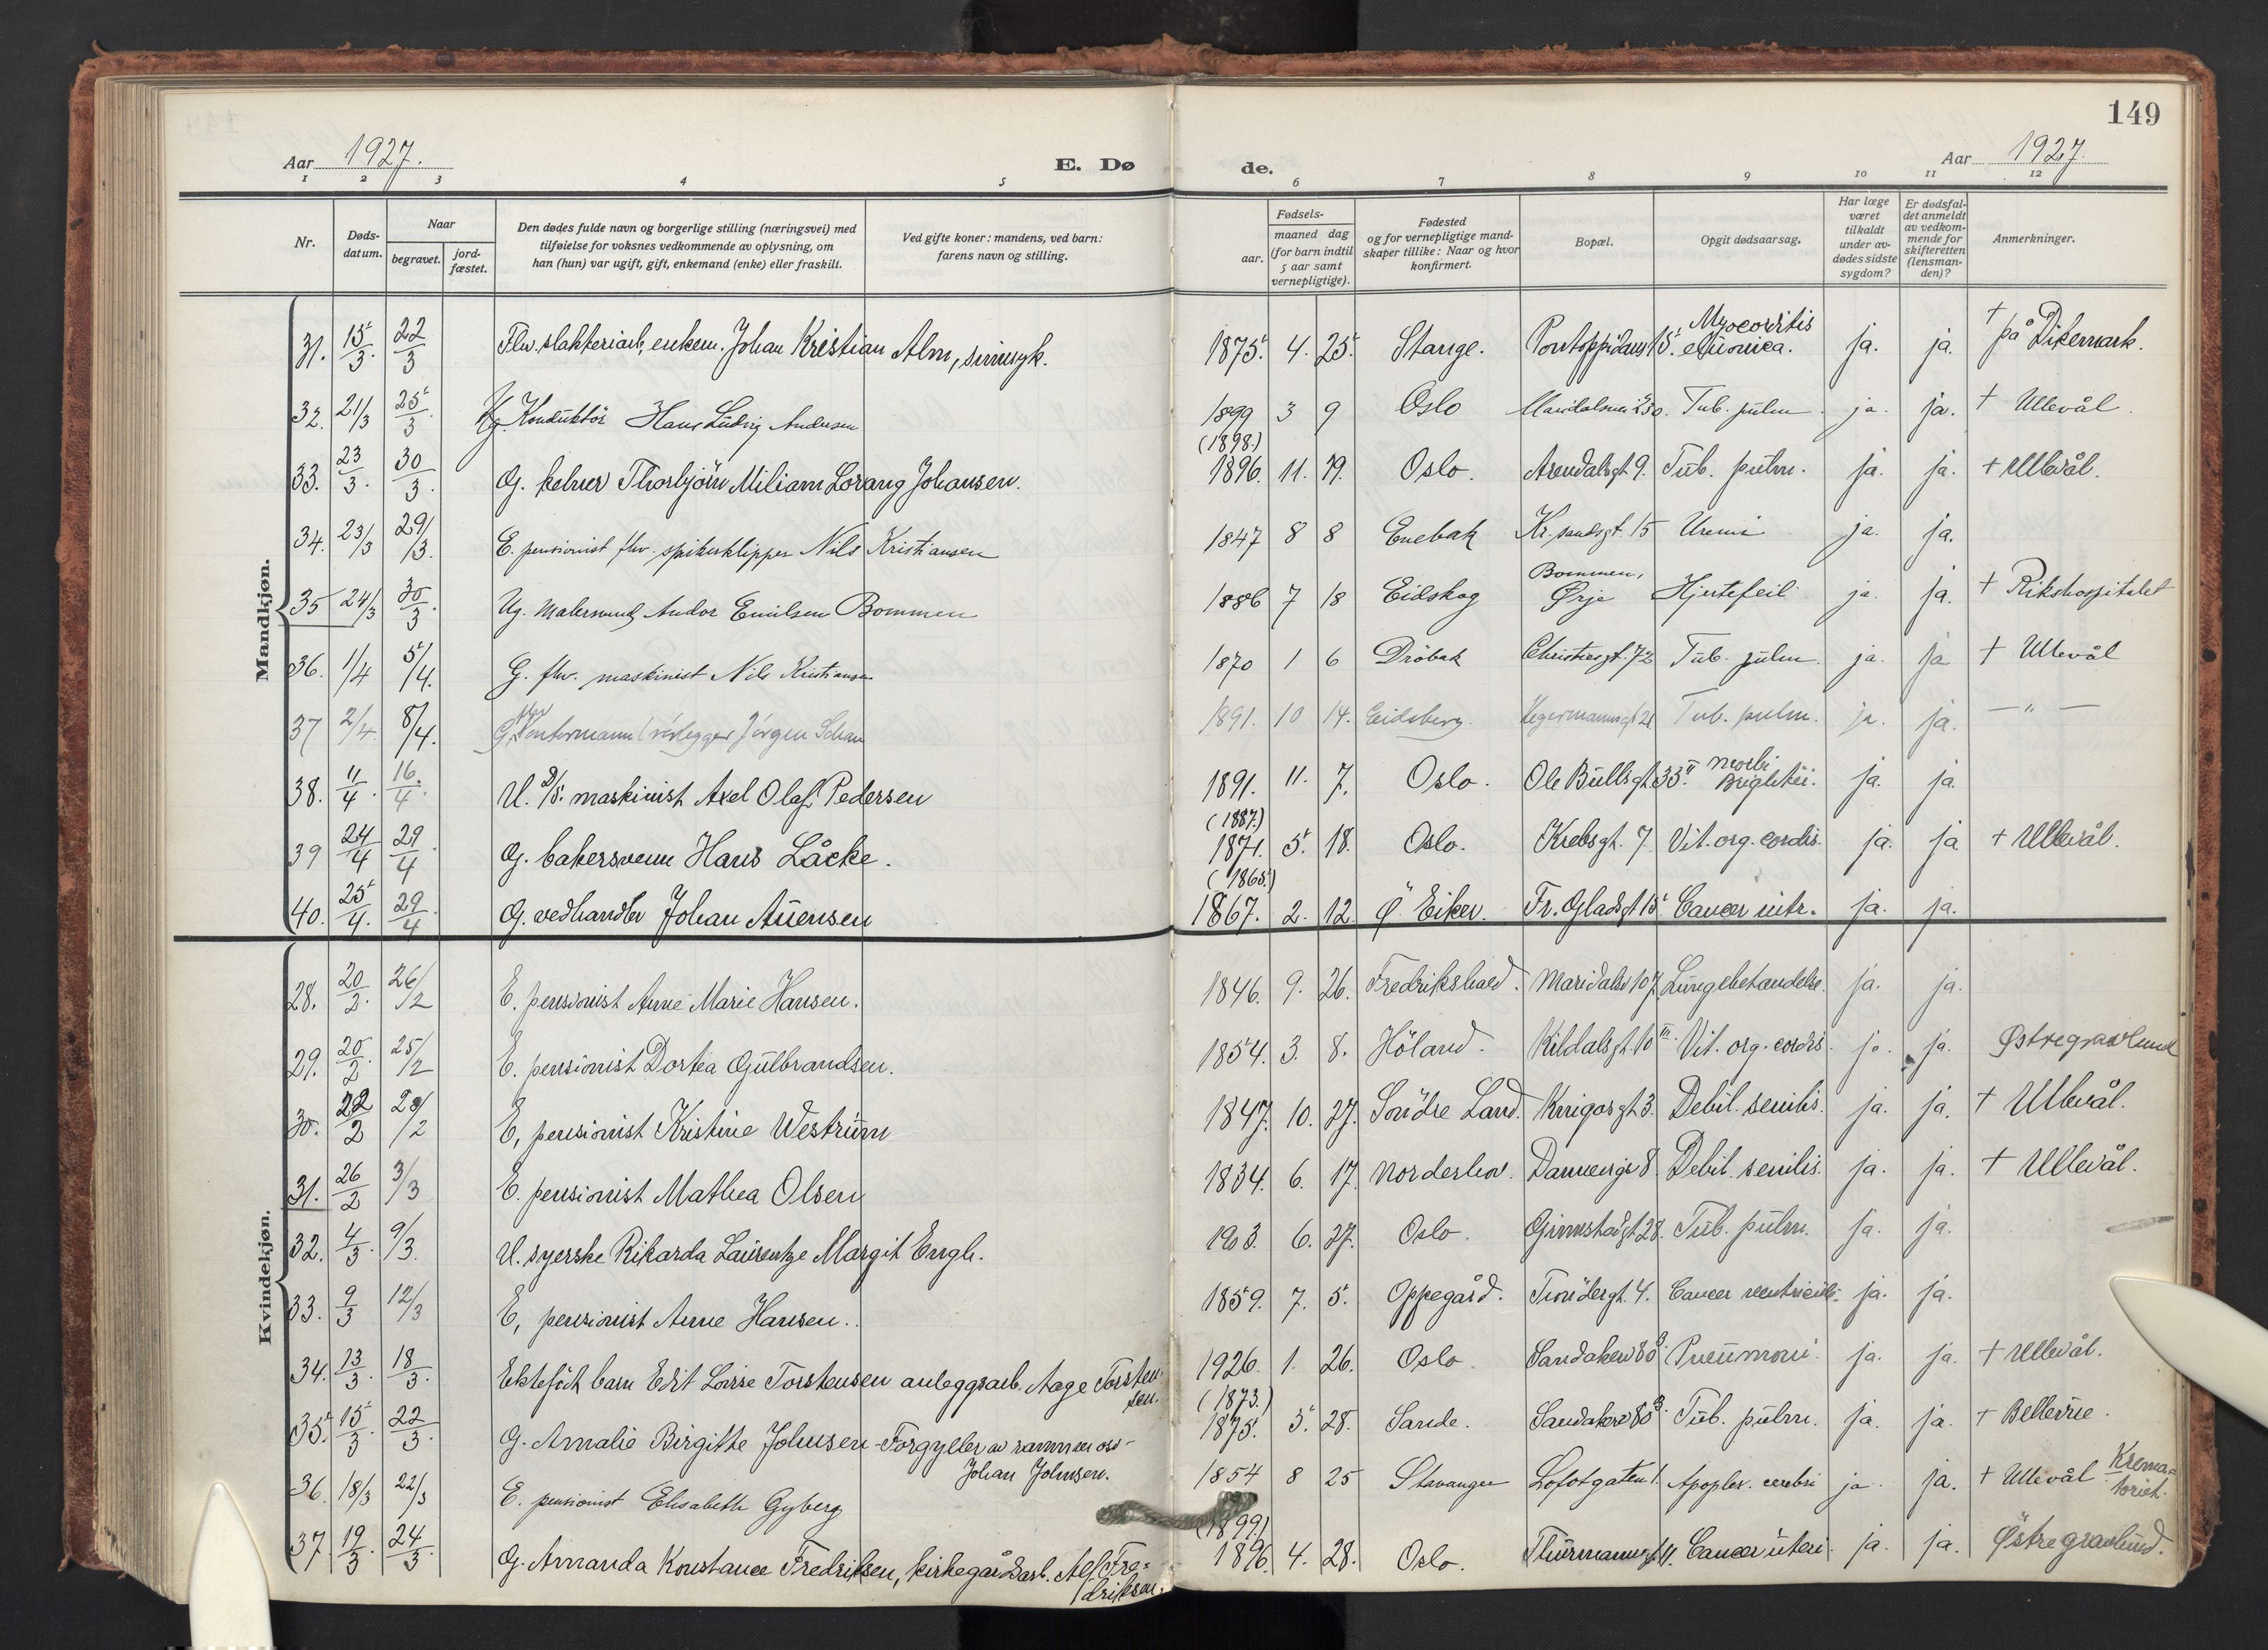 149
Aar 1927. E. Dø de. Aar 1927.
1 2 3 4 5 6 7 8 9 10 11 12
Nr. Døds-datum. Naar begravet. jord-fæstet. Den dødes fulde navn og borgerlige stilling (næringsvei) med tilføielse for voksnes vedkommende av oplysning, om han (hun) var ugift, gift, enkemand (enke) eller fraskilt. Ved gifte koner: mandens, ved barn: farens navn og stilling. Fødsels- aar. maaned dag (for barn indtil 5 aar samt vernepligtige). Fødested og for vernepligtige mand-skaper tillike: Naar og hvor konfirmert. Bopæl. Opgit dødsaarsag. Har læge været tilkaldt under av-dødes sidste sygdom? Er dødsfal-det anmeldt av vedkom-mende for skifteretten (lensman-den)? Anmerkninger.
Mandkjøn.
31. 15/3. 22/3 Flv. slakteriarb, enkem. Johan Kristian Alm, sinnsyk. 1875. 4. 25. Stange. Pontoppidans 15. Myocorditis chronica. ja. ja. + på Dikemark.
32. 21/3 25/3. Ug. Konduktör Hans Ludvig Andersen 1899 3 9 Oslo Maridalsvei 230. Tub. pulm. ja. ja. + Ullevål.
33. 23/3. 30/3. G. kelner Thorbjörn Miliam Lorang Johansen. (1898.) 1896. 11. 19. Oslo. Arendalsgt 9. Tub. pulm. ja. ja. + Ullevål.
34. 23/3 29/3. E. pensionist flv. spikerklipper Nils Kristiansen 1847 8 8 Enebak Kr.sandsgt. 15 Uremi ja. ja.
35 24/3 30/3. Ug. Malersvend Andor Emilsen Bommen 1886 7 18 Eidskog Bommen, Ørje Hjertefeil ja. ja. + Rikshospitalet
36. 1/4 5/4. G. flv. maskinist Nils Kristiansen 1870 1 6 Dröbak Christiesgt. 72 Tub. pulm. ja. ja + Ullevål
37 2/4. 8/4. G. rörlegger Jörgen Schau 1891. 10 14. Eidsberg. Hegermannsgt 21 Tub. pulm. ja. ja. — " —
38. 11/4. 16./4. U. D/S. maskinist Axel Olaf Pedersen 1891. 11. 7. Oslo. Ole Bullsgt. 33 II morbi Brightii. ja. ja.
39 24/4 29/4. G. bakersvenn Hans Låcke. (1887.) 1871. 5. 18. Oslo. Krebsgt. 7 Vit. org. cordis. ja. ja + Ullevål.
40. 25/4. 29/4. G. vedhandler Johan Auensen (1865.) 1867. 2. 12. Ø. Eiker. Fr. Gladsgt 15 Cancer intr. ja. ja.
Kvindekjøn.
28. 20/2. 26/2 E. pensionist Anne Marie Hansen. 1846. 9. 26. Fredrikshald. Maridalsv 107 Lungebetændelse. ja. ja.
29. 20/2. 25/2 E. pensionist Dortea Gulbrandsen. 1854. 3. 8. Höland. Kildalsgt. 10 III. Vit. org. cordis. ja. ja. Østre gravlund
30. 22/2 28/2 E, pensionist Kristine Westrum 1847. 10. 27. Sondre Land. Knigosgt 3. Debil. senilis. ja. ja. + Ullevål.
31. 26/2 3/3 E. pensionist Mathea Olsen 1834. 6. 17. Norderhov. Dannevigsv 8. Debil. senilis. ja. ja. + Ullevål.
32. 4/3. 9/3. U. syerske Rikarda Laurentze Margit Engh. 1903. 6. 27. Oslo. Grimstadgt 28. Tub. pulm. ja. ja.
33. 9/3 12/3 E, pensionist Anne Hansen. 1859. 7. 5. Oppegård. Tröndergt. 4. Cancer ventriculi. ja. ja.
34. 13/3. 18/3. Ektefödt barn Edit Lovise Torstensen anleggsarb. Aage Torstensen. 1926. 1. 26. Oslo. Sandakerv 80 B. Pneumoni. ja. ja. + Ullevål.
35. 15/3 22/3. G. Amalie Birgitte Johnsen - Forgyller av rammer osv - Johan Johnsen. (1873.) 1875. 5. 28. Sande. Sandakerv 80 B. Tub. pulm. ja. ja. + Bellevue.
36. 18/3 22/3 E. pensionist Elisabeth Gyberg 1854 8 25 Stavanger Lofotgaten 1. Apoplex. cerebri ja. ja. + Ullevål Krema=toriet.
37 19/3. 24/3. G. Amanda Konstance Fredriksen, kirkegårdsarb. Alf Fre=driksen. (1899.) 1896. 4. 28. Oslo. Thurmannsgt 11. Cancer uteri. ja. ja. Östre gravlund.